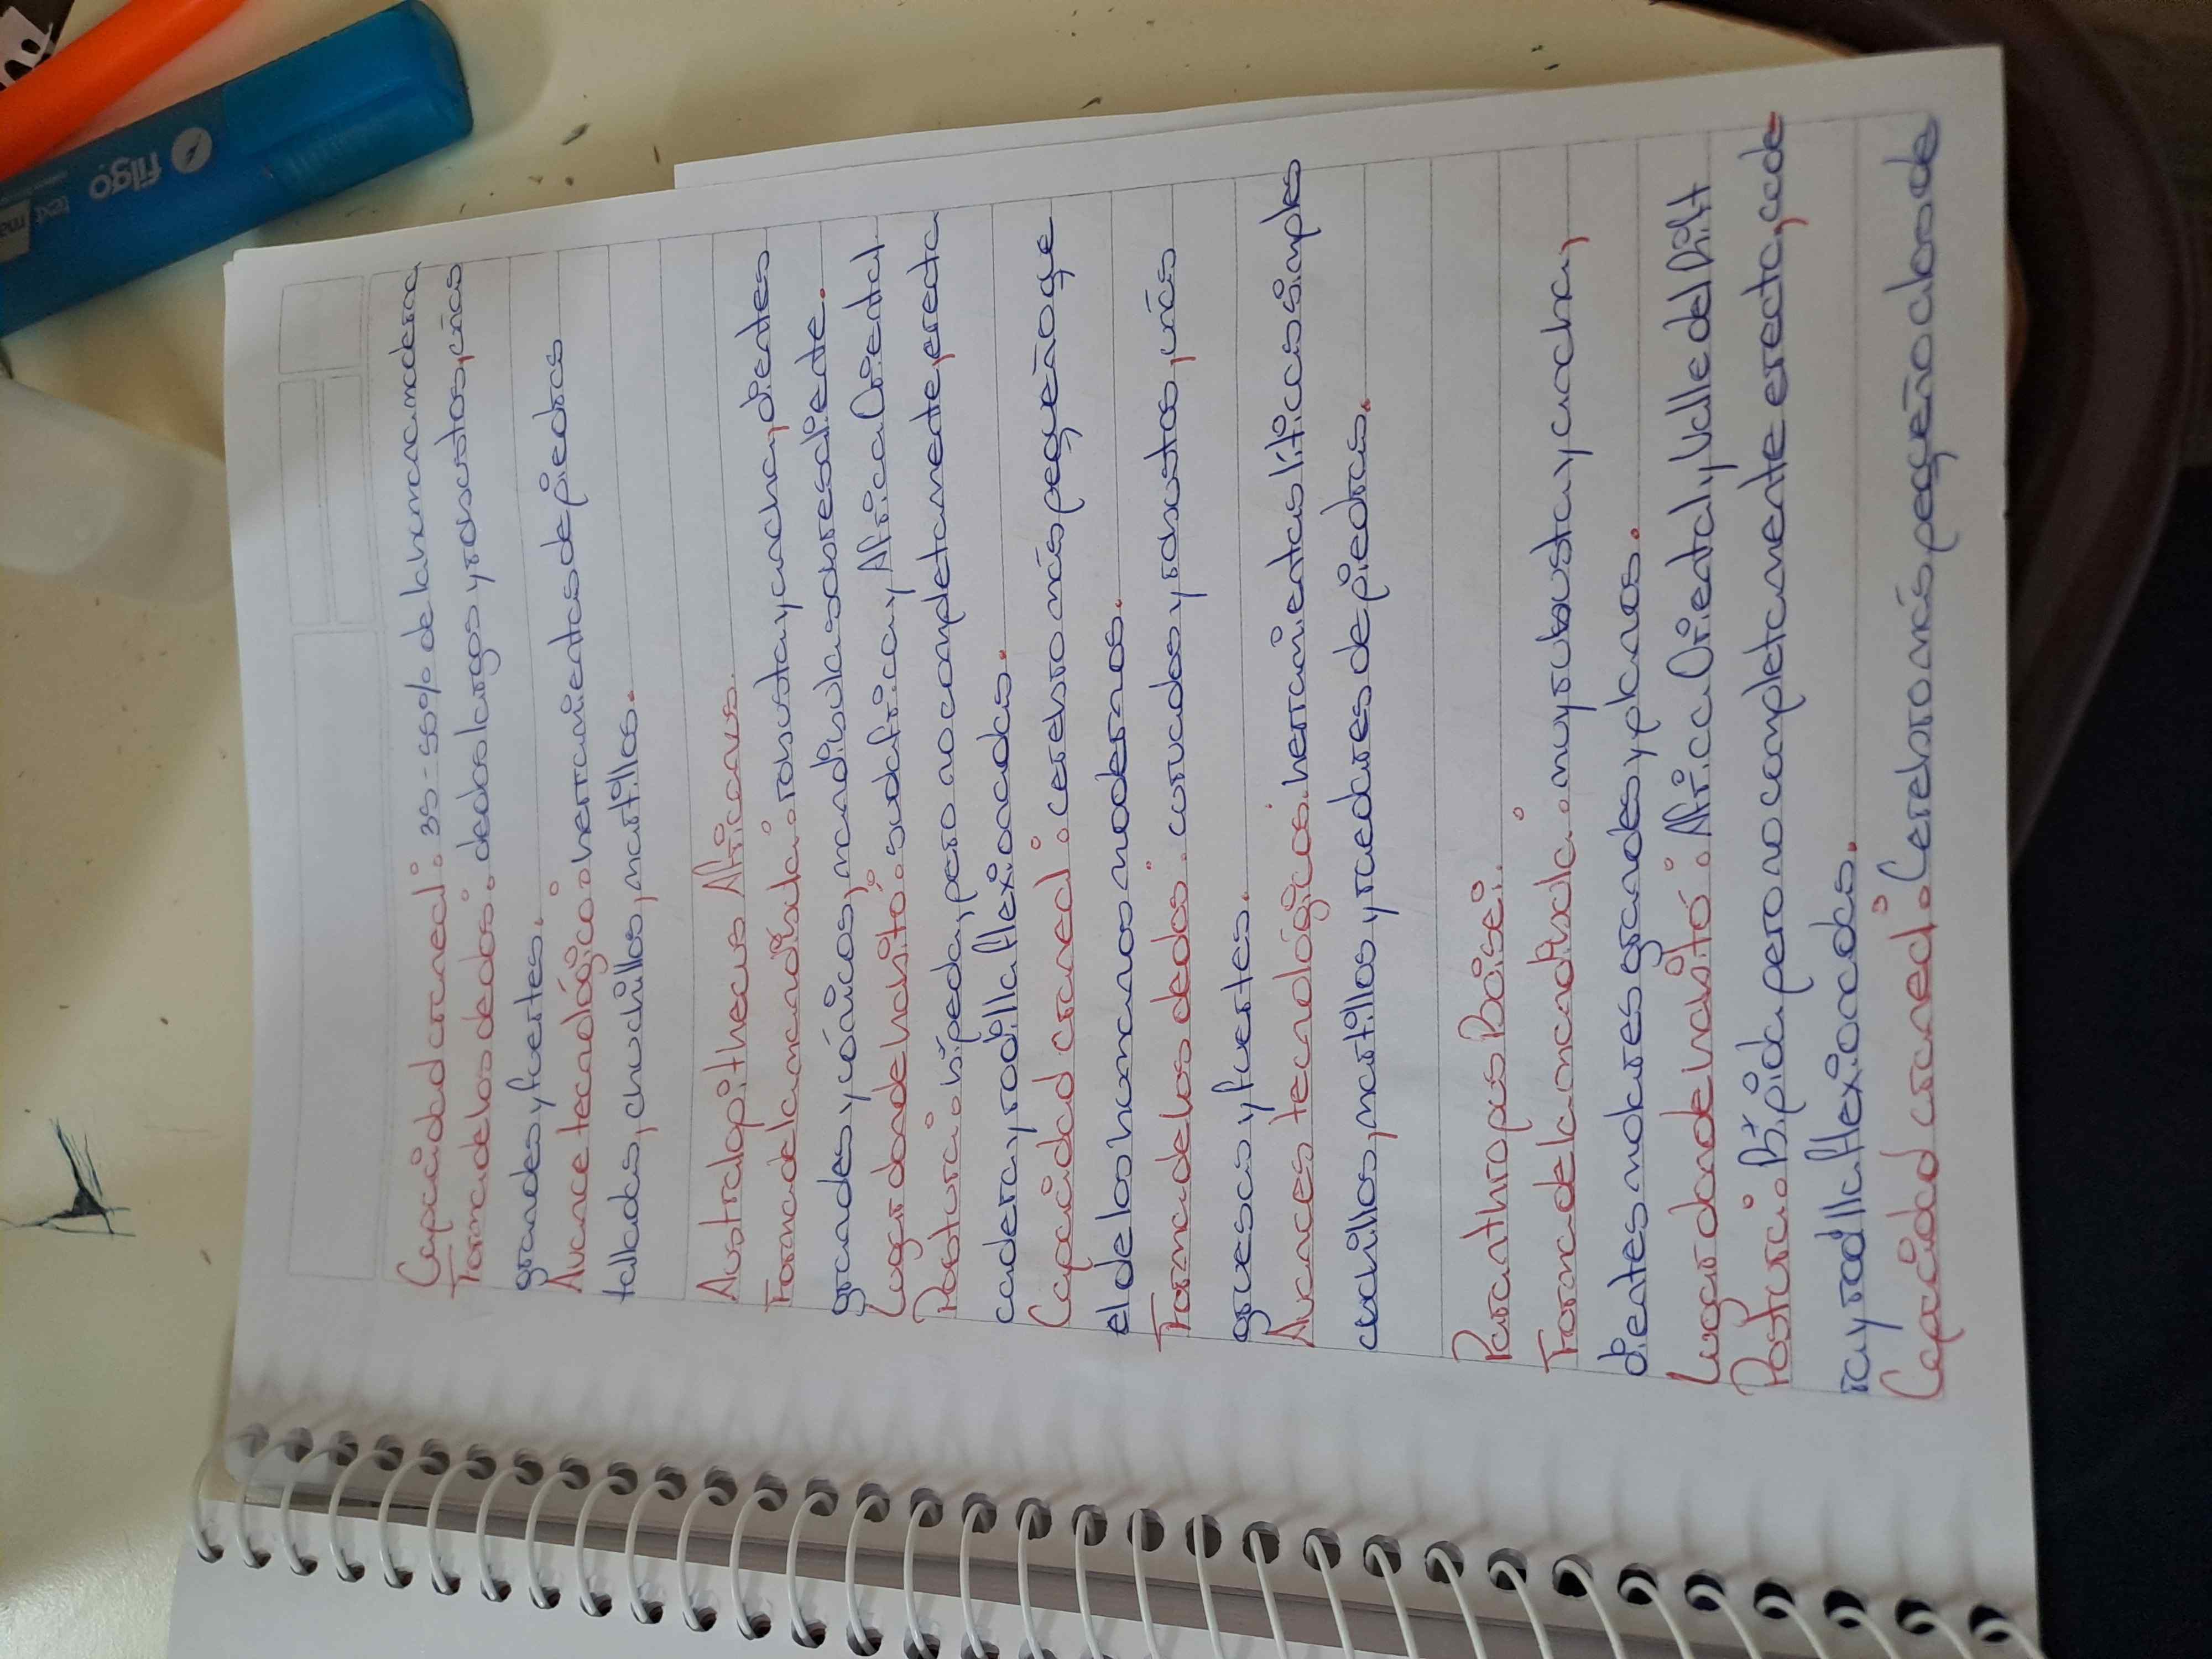 Capacidad craneal: 35-50% de la humana moderna
Forma de los dedos: dedos largos y robustos, uñas
grandes y fuertes.
Avance tecnológico: herramientas de piedras
talladas, chuchillos, martillos.
Australopithecus Africanus
Forma de la mandíbula: robusta y ancha, dientes
grandes y cónicos, mandibula sobresaliente.
Lugar donde habitó: sudafrica y Africa Oriental
Postura: bípeda, pero no completamente, erecta
cadera y rodilla flexionadas.
Capacidad craneal: cerebro más pequeño que
el de los humanos modernos.
Forma de los dedos: curvados y robustos, uñas
gruesas y fuertes.
Avances tecnológicos: herramientas líticas simples
cuchillos, martillos y raedores de piedras.
Paranthropus Boisei:
Forma de la mandíbula: muy robusta y ancha,
dientes molares grandes y planos.
Lugar donde habitó: Africa Oriental, Valle del Rift
Postura: Bípida pero no completamente erecta, cade
ra y rodilla flexionadas.
Capacidad craneal: Cerebro más pequeño a los de
filgo
text